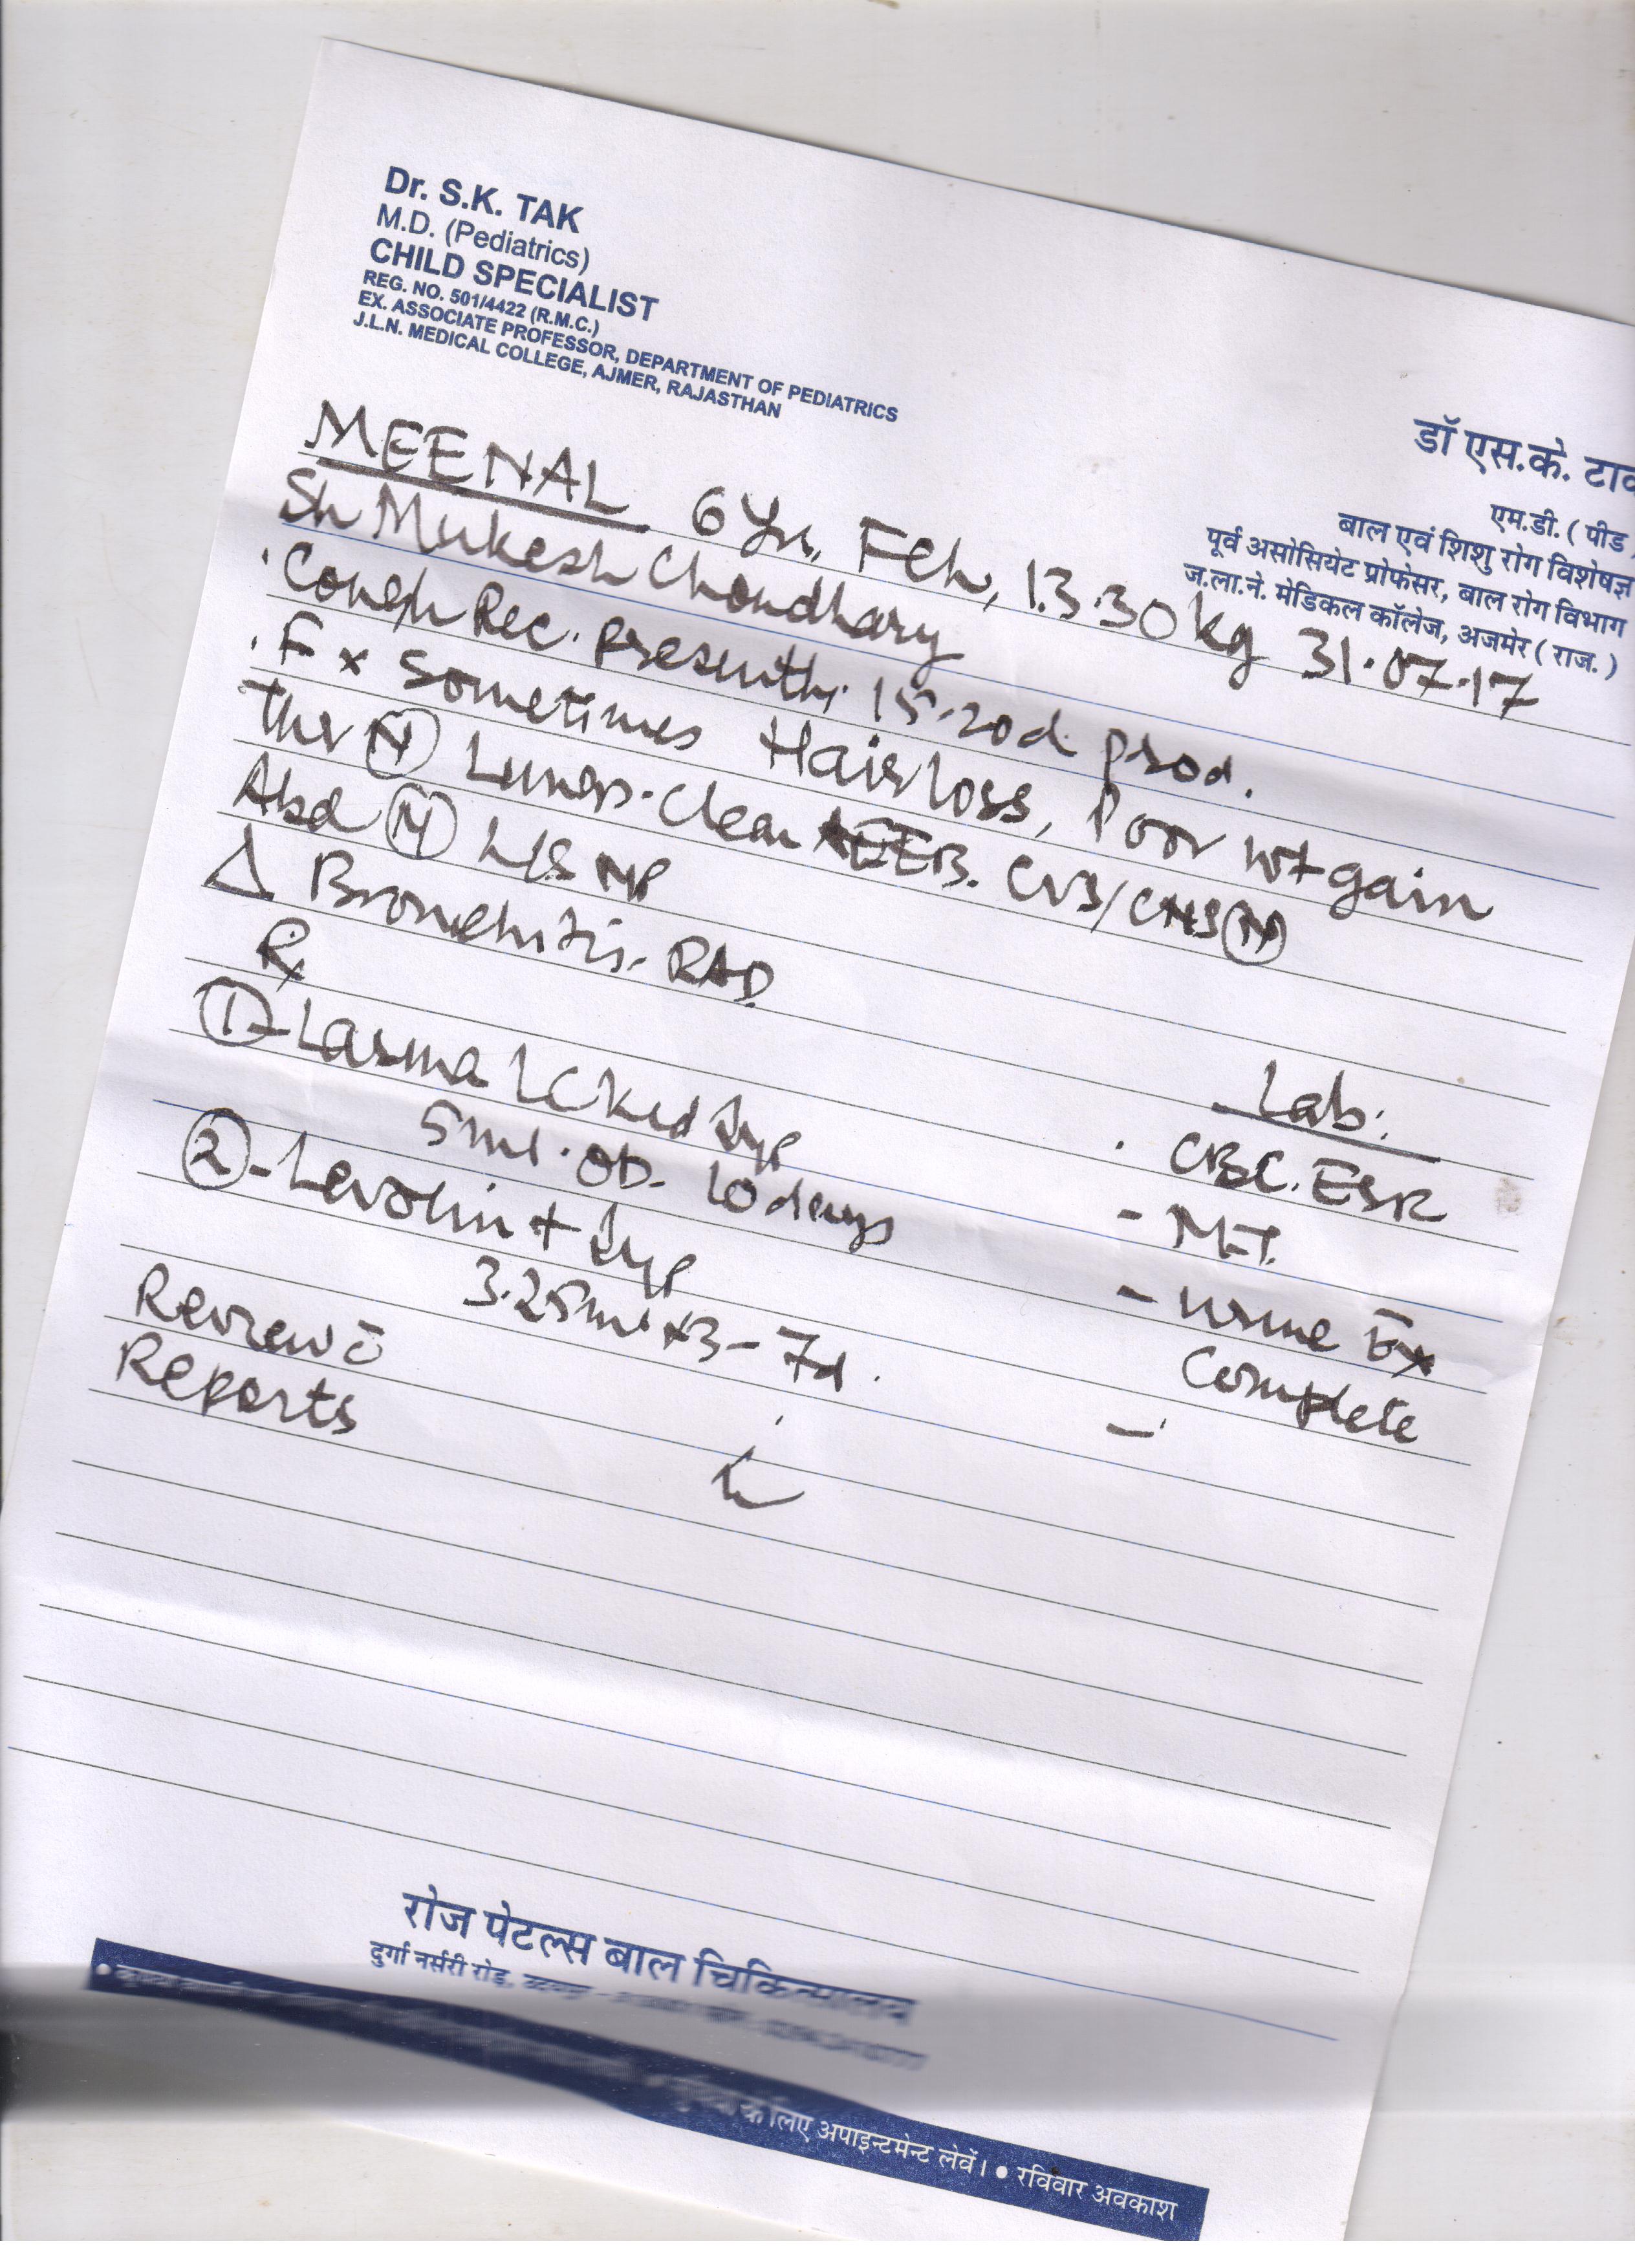 Dr. S.K. TAK
M.D. (Pediatrics)
CHILD SPECIALIST
REG. NO. 501/4422 (R.M.C.)
EX. ASSOCIATE PROFESSOR, DEPARTMENT OF PEDIATRICS
J.L.N. MEDICAL COLLEGE, AJMER, RAJASTHAN
डॉ एस.के. टाक
एम.डी. ( पीड
बाल एवं शिशु रोग विशेषज्ञ
पूर्व असोसियेट प्रोफेसर, बाल रोग विभाग
ज.ला.ने. मेडिकल कॉलेज, अजमेर ( राज. )
MEENAL 6 Yrs, FCh, 13.30 kg 31.07.17
Sh Mukesh Choudhary
. Cough Rec. presently 15-20d. prod.
. F x sometimes Hair loss, Poor wt gain
Thr (N) Lungs-clear AEEB. CVS/CNS (N)
Abd (N) L/S NP
Δ Bronchitis. RAD
Rx
① - Lasma LC Kid Syp
5ml. OD. 10 days
② - Levolin + Syp
3.25ml x3 - 7d.
Review c̄
Reports
Lab:
. CBC. ESR
- M.T.
- urine Ex
Complete
-
रोज पेटल्स बाल चिकित्सालय
दुर्गा नर्सरी रोड,
के लिए अपाइन्टमेन्ट लेवें। • रविवार अवकाश